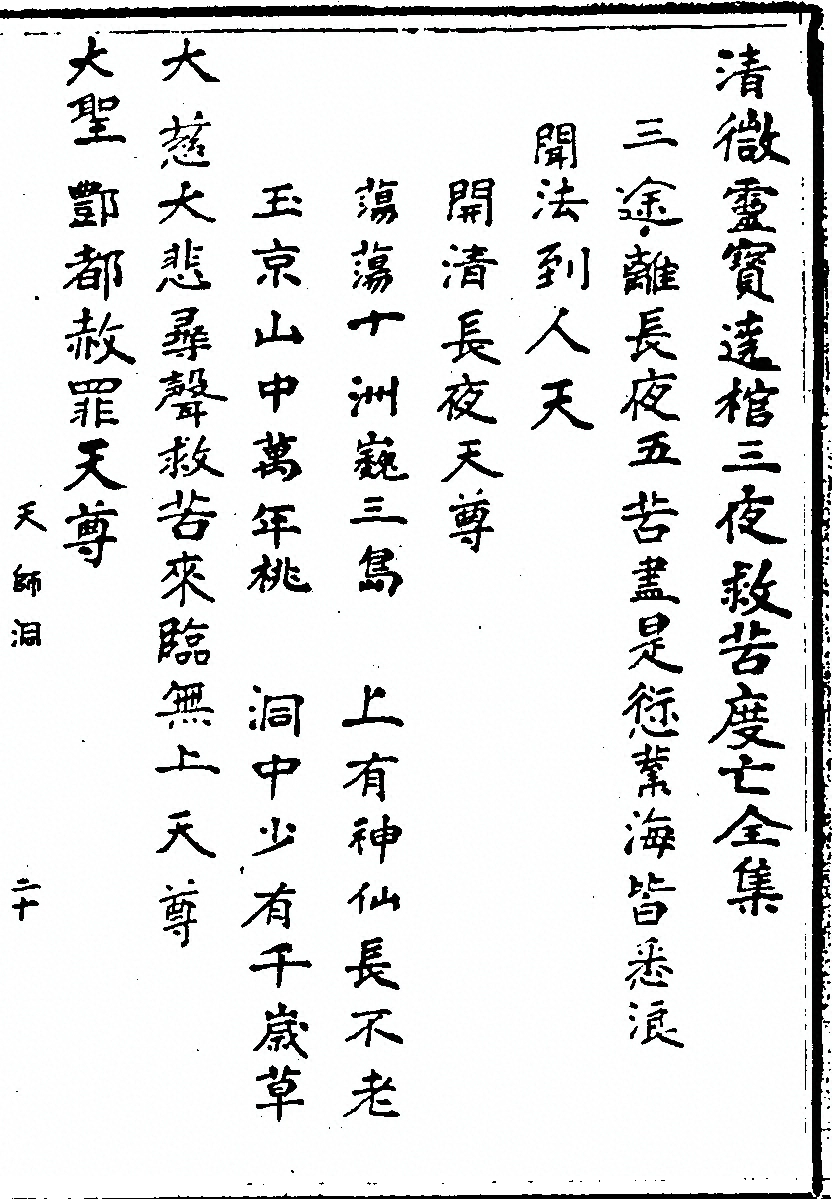 清微靈寶達棺三夜救苦度亡全集
三途離長夜五苦盡是愆業海皆悉浪
聞法到人天
開清長夜天尊
蕩蕩十洲巍三島 上有神仙長不老
玉京山中萬年桃 洞中少有千歲草
大慈大悲尋聲救苦來臨無上天尊
大聖酆都赦罪天尊
天師洞 二十